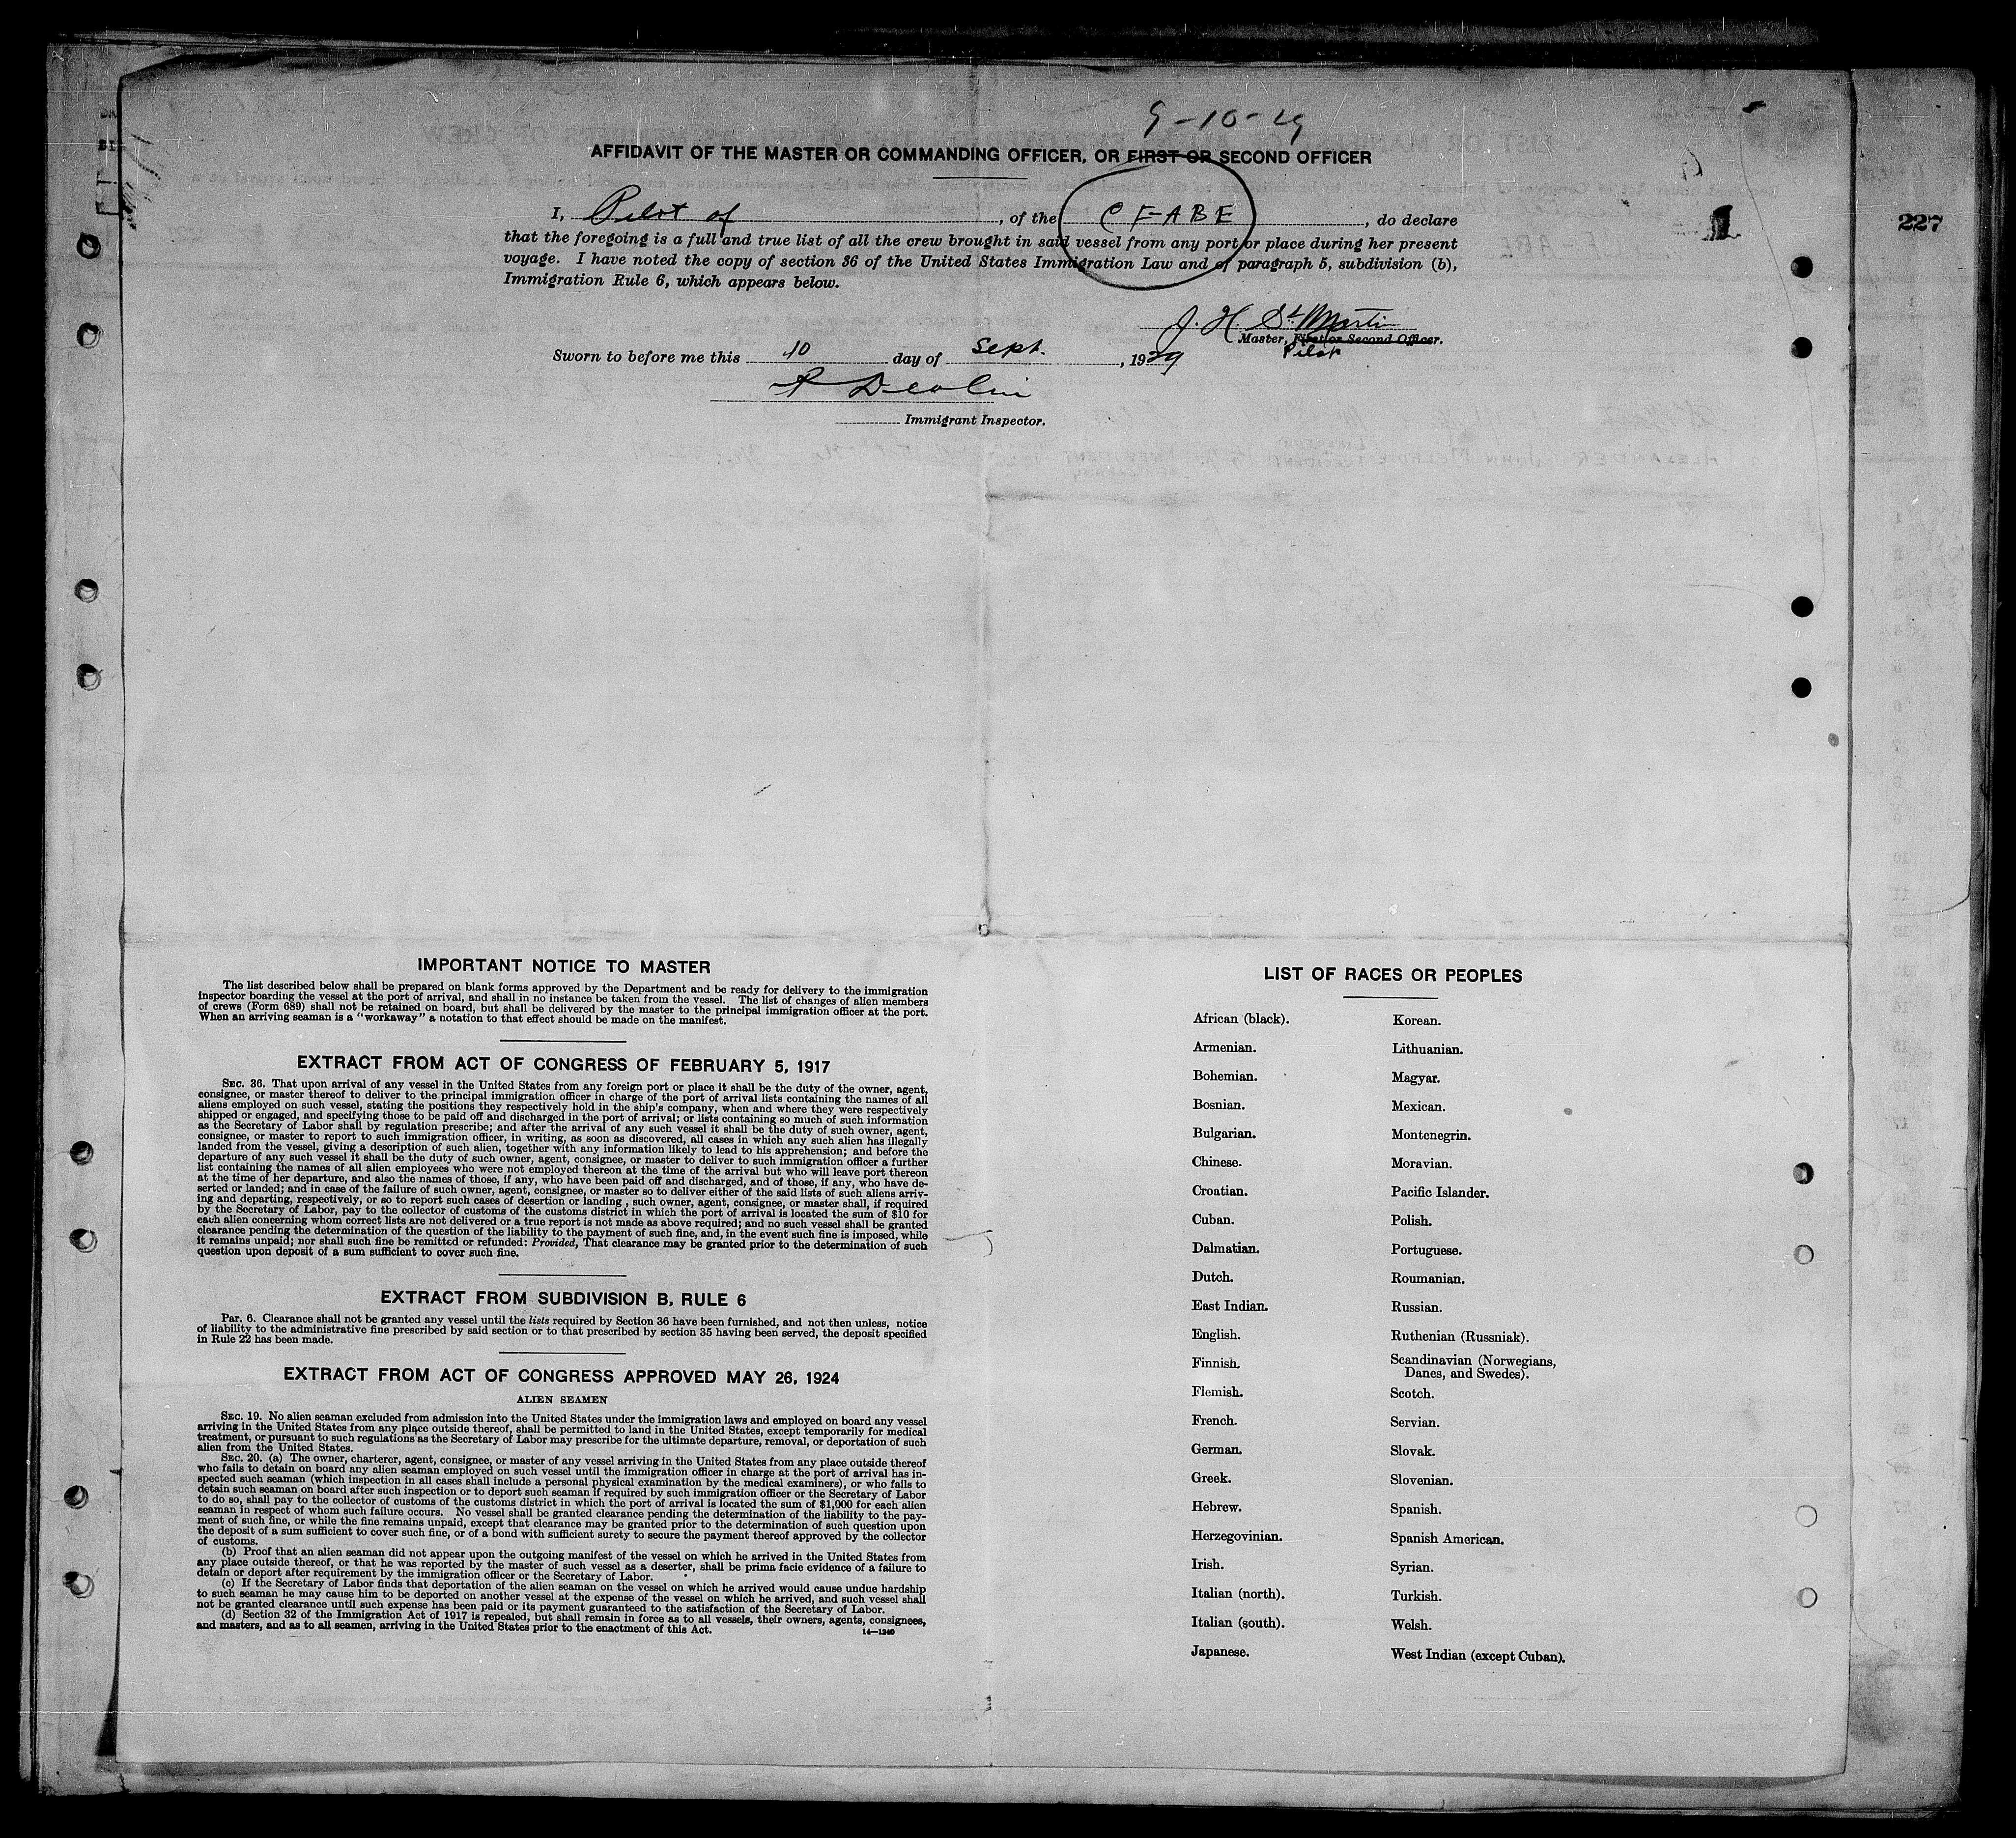 9-10-29
AFFIDAVIT OF THE MASTER OR COMMANDING OFFICER, OR FIRST OR SECOND OFFICER
I, Pilot of, of the CF-ABE, do declare
that the foregoing is a full and true list of all the crew brought in said vessel from any port or place during her present
voyage. I have noted the copy of section 36 of the United States Immigration Law and of paragraph 5, subdivision (b),
Immigration Rule 6, which appears below.
J. H. St Martin
Master, First or Second Officer.
Pilot
Sworn to before me this 10 day of Sept., 1929
Immigrant Inspector.
1
227
IMPORTANT NOTICE TO MASTER
The list described below shall be prepared on blank forms approved by the Department and be ready for delivery to the immigration
inspector boarding the vessel at the port of arrival, and shall in no instance be taken from the vessel. The list of changes of alien members
of crews (Form 689) shall not be retained on board, but shall be delivered by the master to the principal immigration officer at the port.
When an arriving seaman is a "workaway" a notation to that effect should be made on the manifest.
EXTRACT FROM ACT OF CONGRESS OF FEBRUARY 5, 1917
SEC. 36. That upon arrival of any vessel in the United States from any foreign port or place it shall be the duty of the owner, agent,
consignee, or master thereof to deliver to the principal immigration officer in charge of the port of arrival lists containing the names of all
aliens employed on such vessel, stating the positions they respectively hold in the ship's company, when and where they were respectively
shipped or engaged, and specifying those to be paid off and discharged in the port of arrival; or lists containing so much of such information
as the Secretary of Labor shall by regulation prescribe; and after the arrival of any such vessel it shall be the duty of such owner, agent,
consignee, or master to report to such immigration officer, in writing, as soon as discovered, all cases in which any such alien has illegally
landed from the vessel, giving a description of such alien, together with any information likely to lead to his apprehension; and before the
departure of any such vessel it shall be the duty of such owner, agent, consignee, or master to deliver to such immigration officer a further
list containing the names of all alien employees who were not employed thereon at the time of the arrival but who will leave port thereon
at the time of her departure, and also the names of those, if any, who have been paid off and discharged, and of those, if any, who have de-
serted or landed; and in case of the failure of such owner, agent, consignee, or master so to deliver either of the said lists of such aliens arriv-
ing and departing, respectively, or so to report such cases of desertion or landing, such owner, agent, consignee, or master shall, if required
by the Secretary of Labor, pay to the collector of customs of the customs district in which the port of arrival is located the sum of $10 for
each alien concerning whom correct lists are not delivered or a true report is not made as above required; and no such vessel shall be granted
clearance pending the determination of the question of the liability to the payment of such fine, and, in the event such fine is imposed, while
it remains unpaid; nor shall such fine be remitted or refunded: Provided, That clearance may be granted prior to the determination of such
question upon deposit of a sum sufficient to cover such fine.
EXTRACT FROM SUBDIVISION B, RULE 6
Par. 6. Clearance shall not be granted any vessel until the lists required by Section 36 have been furnished, and not then unless, notice
of liability to the administrative fine prescribed by said section or to that prescribed by section 35 having been served, the deposit specified
in Rule 22 has been made.
EXTRACT FROM ACT OF CONGRESS APPROVED MAY 26, 1924
ALIEN SEAMEN
SEC. 19. No alien seaman excluded from admission into the United States under the immigration laws and employed on board any vessel
arriving in the United States from any place outside thereof, shall be permitted to land in the United States, except temporarily for medical
treatment, or pursuant to such regulations as the Secretary of Labor may prescribe for the ultimate departure, removal, or deportation of such
alien from the United States.
SEC. 20. (a) The owner, charterer, agent, consignee, or master of any vessel arriving in the United States from any place outside thereof
who fails to detain on board any alien seaman employed on such vessel until the immigration officer in charge at the port of arrival has in-
spected such seaman (which inspection in all cases shall include a personal physical examination by the medical examiners), or who fails to
detain such seaman on board after such inspection or to deport such seaman if required by such immigration officer or the Secretary of Labor
to do so, shall pay to the collector of customs of the customs district in which the port of arrival is located the sum of $1,000 for each alien
seaman in respect of whom such failure occurs. No vessel shall be granted clearance pending the determination of the liability to the pay-
ment of such fine, or while the fine remains unpaid, except that clearance may be granted prior to the determination of such question upon
the deposit of a sum sufficient to cover such fine, or of a bond with sufficient surety to secure the payment thereof approved by the collector
of customs.
(b) Proof that an alien seaman did not appear upon the outgoing manifest of the vessel on which he arrived in the United States from
any place outside thereof, or that he was reported by the master of such vessel as a deserter, shall be prima facie evidence of a failure to
detain or deport after requirement by the immigration officer or the Secretary of Labor.
(c) If the Secretary of Labor finds that deportation of the alien seaman on the vessel on which he arrived would cause undue hardship
to such seaman he may cause him to be deported on another vessel at the expense of the vessel on which he arrived, and such vessel shall
not be granted clearance until such expense has been paid or its payment guaranteed to the satisfaction of the Secretary of Labor.
(d) Section 32 of the Immigration Act of 1917 is repealed, but shall remain in force as to all vessels, their owners, agents, consignees,
and masters, and as to all seamen, arriving in the United States prior to the enactment of this Act.
14—1240
LIST OF RACES OR PEOPLES
African (black).
Armenian.
Bohemian.
Bosnian.
Bulgarian.
Chinese.
Croatian.
Cuban.
Dalmatian.
Dutch.
East Indian.
English.
Finnish.
Flemish.
French.
German.
Greek.
Hebrew.
Herzegovinian.
Irish.
Italian (north).
Italian (south).
Japanese.
Korean.
Lithuanian.
Magyar.
Mexican.
Montenegrin.
Moravian.
Pacific Islander.
Polish.
Portuguese.
Roumanian.
Russian.
Ruthenian (Russniak).
Scandinavian (Norwegians,
Danes, and Swedes).
Scotch.
Servian.
Slovak.
Slovenian.
Spanish.
Spanish American.
Syrian.
Turkish.
Welsh.
West Indian (except Cuban).